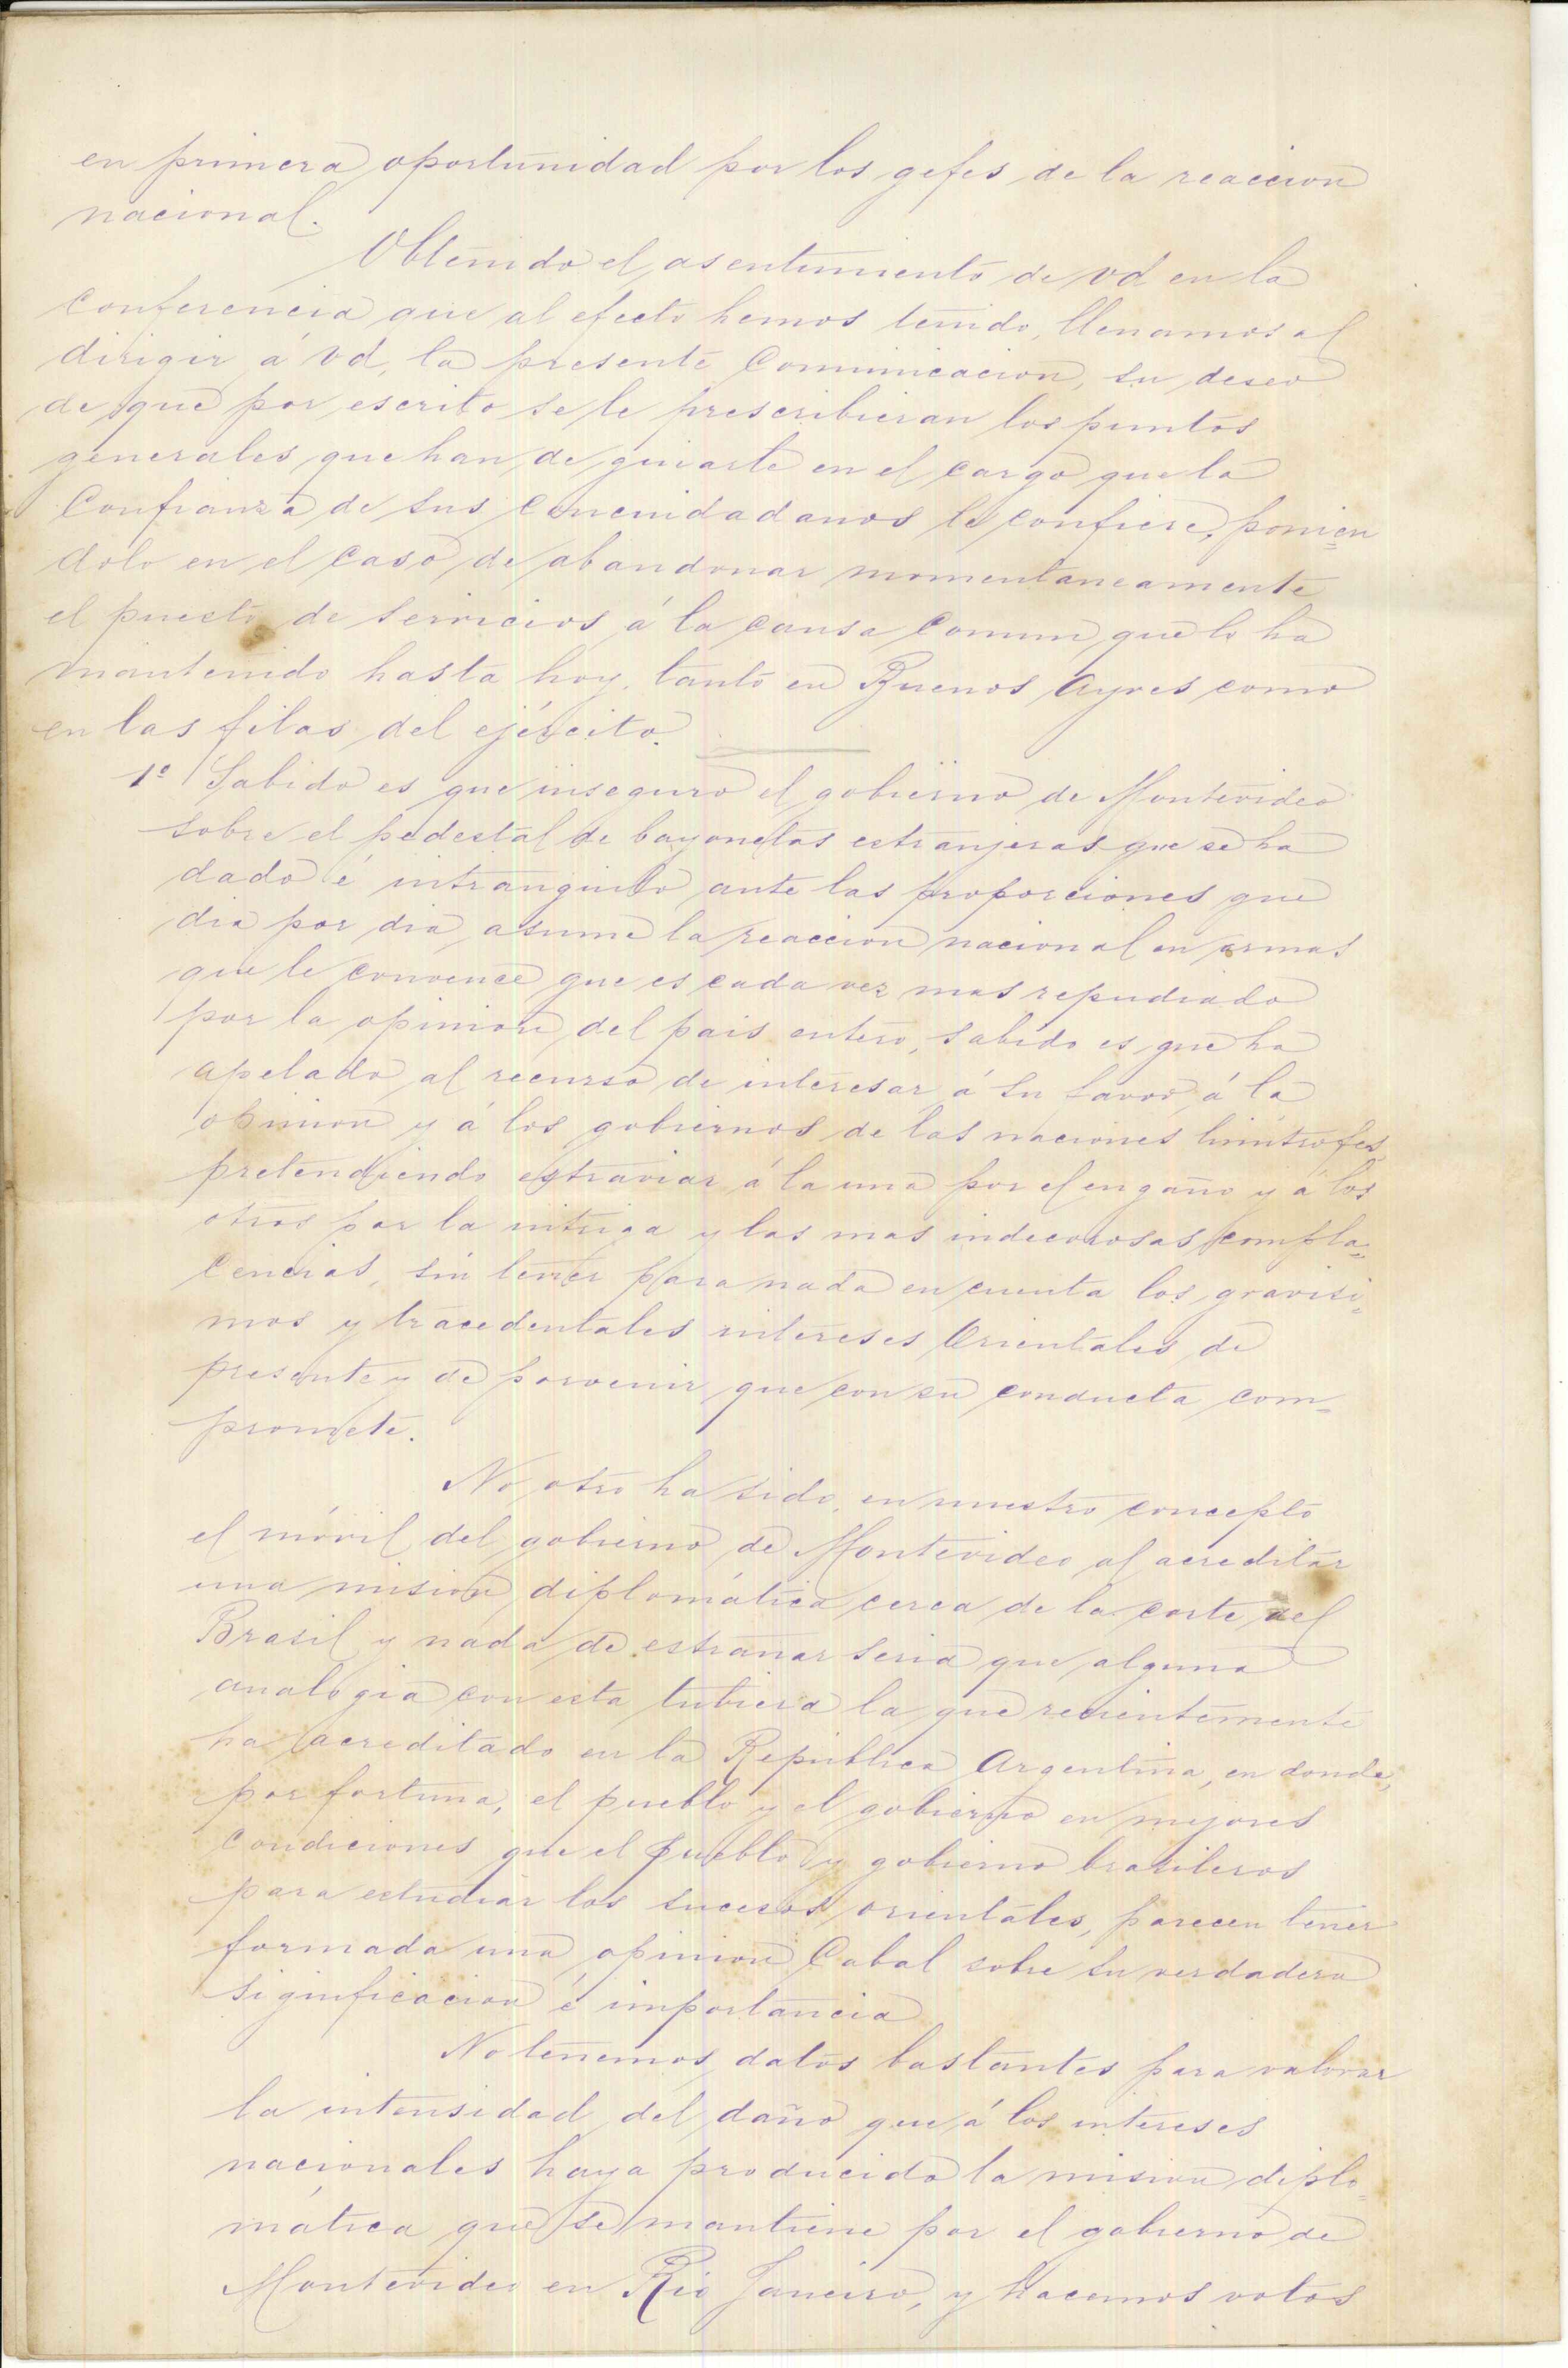 en primera oportunidad por los gefes de la reaccion
nacional.
Obtenido el asentimiento de vd en la
conferencia que al efecto hemos tenido, llenamos al
dirigir á vd, la presente Comunicacion, su deseo
de que por escrito se le prescribieran los puntos
generales que han de guiarle en el cargo que la
Confianza de sus concuidadanos le confiere, ponien
dolo en el caso de abandonar momentaneamente
el puesto de servicios á la causa comun que lo ha
mantenido hasta hoy, tanto en Buenos Ayres como
en las filas del ejército.
1º Sabido es que inseguro el gobierno de Montevideo
sobre el pedestal de bayonetas estranjeras que se ha
dado é intranquilo ante las proporciones que
dia por dia asume la reaccion nacional en armas
que le convence que es cada vez mas repudiado
por la opinion del pais entero, sabido es que ha
apelado al recurso de interesar á su favor á la
opinion y á los gobiernos de las naciones limítrofes
pretendiendo estraviar á la una por el engaño y á los
otros por la intriga y las mas indecorosas compla=
cencias, sin tener para nada en cuenta los gravisi=
mos y tracedentales intereses Orientales de
presente y de porvenir que con su conducta com=
promete.
No otro ha sido, en nuestro concepto
el móvil del gobierno de Montevideo al acreditar
una mision diplomática cerca de la corte del
Brasil y nada de estrañar seria que alguna
analogia con esta tubiera la que recientemente
ha acreditado en la República Argentina, en donde,
por fortuna, el pueblo y el gobierno en mejores
condiciones que el pueblo y gobierno brasileros
para estudiar los sucesos orientales, parecen tener
formada una opinion Cabal sobre su verdadera
significacion é importancia
No tenemos datos bastantes para valorar
la intensidad del daño que á los intereses
nacionales haya producido la mision diplo=
mática que se mantiene por el gobierno de
Montevideo en Rio Janeiro, y hacemos votos